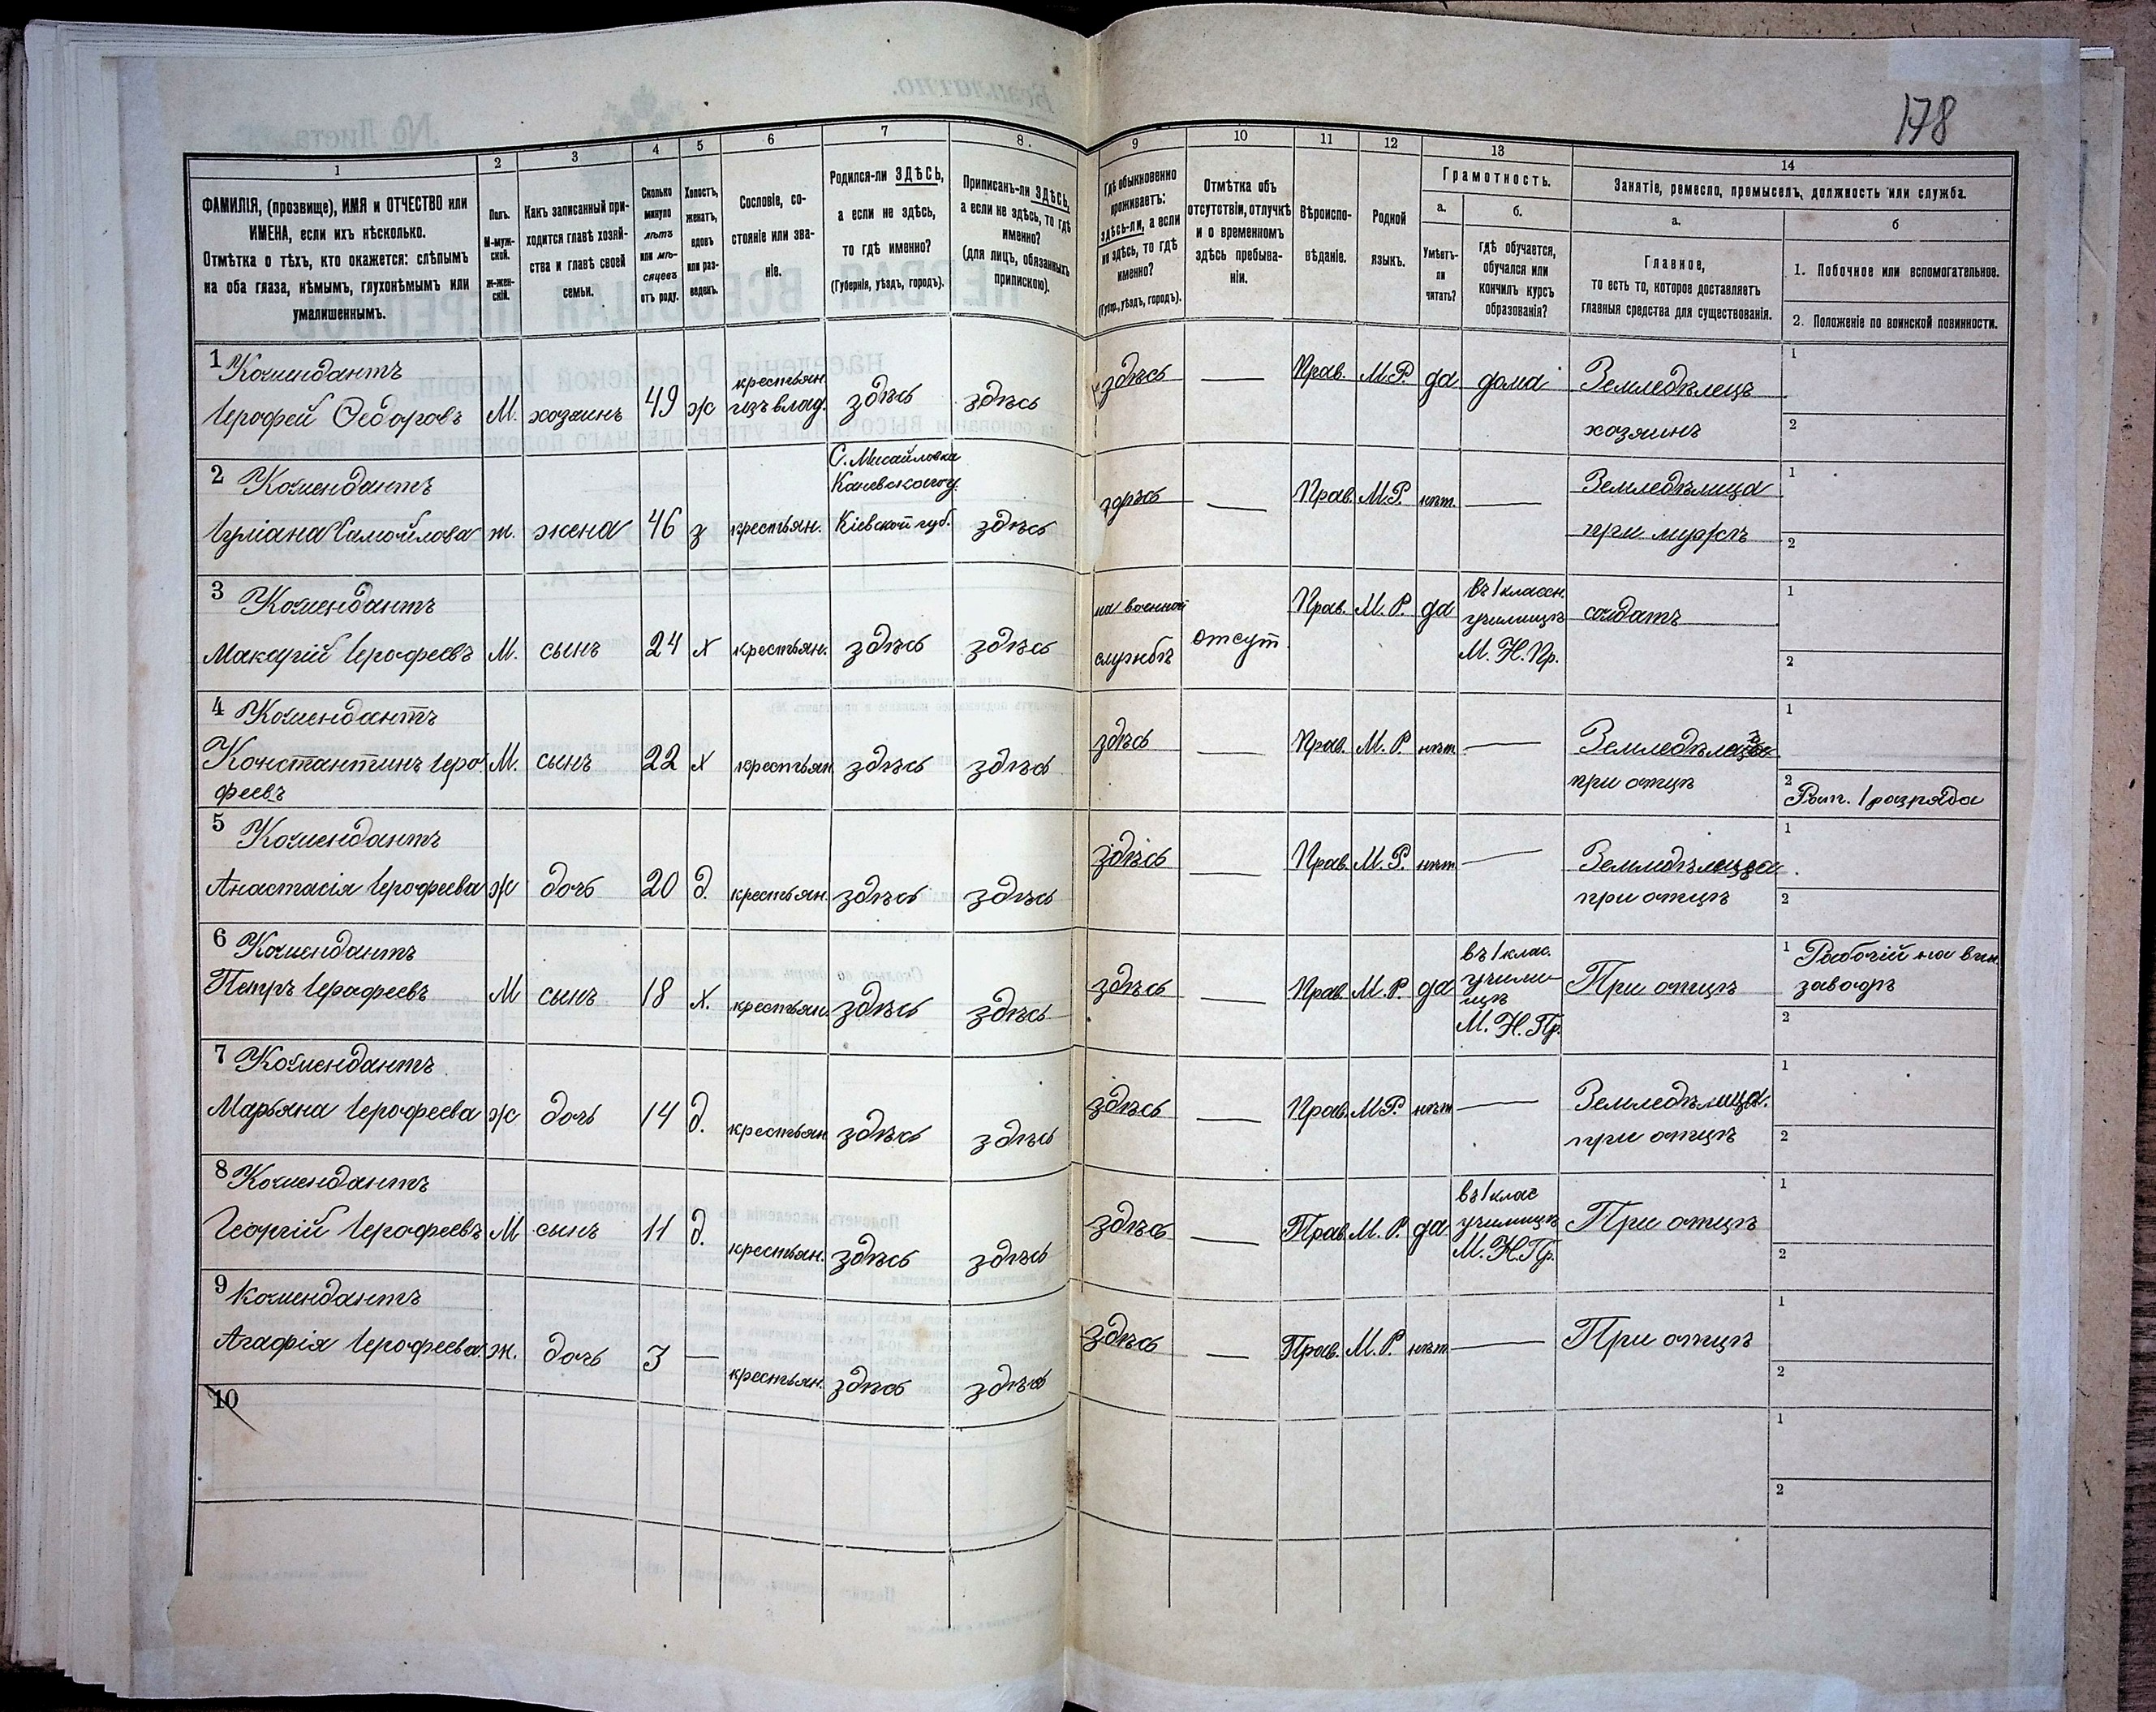 178
1
2
3
4
5
6
7
8.
9
10
11
12
13
14
ФАМИЛІЯ, (прозвище), ИМЯ и ОТЧЕСТВО или
ИМЕНА, если ихъ нѣсколько.
Отмѣтка о тѣхъ, кто окажется: слѣпымъ
на оба глаза, нѣмымъ, глухонѣмымъ или
умалишеннымъ.
Полъ.
М-муж-
ской.
Ж-жен-
скій.
Какъ записанный при-
ходится главѣ хозяй-
ства и главѣ своей
семьи.
Сколько
минуло
лѣтъ
или мѣ-
сяцевъ
отъ роду.
Холостъ,
женатъ,
вдовъ
или раз-
веденъ.
Сословіе, со-
стояніе или зва-
ніе.
Родился-ли ЗДѢСЬ,
а если не здѣсь,
то гдѣ именно?
(Губернія, уѣздъ, городъ).
Приписанъ-ли ЗДѢСЬ,
а если не здѣсь, то гдѣ
именно?
(для лицъ, обязанныхъ
припискою).
Гдѣ обыкновенно
проживаетъ:
здѣсь-ли, а если
не здѣсь, то гдѣ
именно?
(Губер., уѣздъ, городъ).
Отмѣтка объ
отсутствіи, отлучкѣ
и о временномъ
здѣсь пребыва-
ніи.
Вѣроиспо-
вѣданіе.
Родной
языкъ.
Грамотность.
а.
б.
Умѣетъ-
ли
читать?
гдѣ обучается,
обучался или
кончилъ курсъ
образованія?
Занятіе, ремесло, промыселъ, должность или служба.
а.
б
Главное,
то есть то, которое доставляетъ
главныя средства для существованія.
1. Побочное или вспомогательное.
2. Положеніе по воинской повинности.
1 Комендантъ
Іерофей Ѳедоровъ М. хозяинъ 49 ж крестьян. изъ влад. здѣсь здѣсь здѣсь — Прав. М.Р. да дома Земледѣлецъ
хозяинъ
1
2
2 Комендантъ
Іуліана Самойлова ж. жена 46 з крестьян.
С. Мисайловка
Каневского у.
Кіевской губ. здѣсь здѣсь — Прав. М.Р. нѣт. — Земледѣлица
при мужѣ
1
2
3 Комендантъ
Макарій Іерофеевъ М. сынъ 24 х крестьян. здѣсь здѣсь
на военной
службѣ отсут. Прав. М.Р. да
въ 1 классн.
училищѣ
М.Н.Пр.
солдатъ
1
2
4 Комендантъ
Константинъ Іеро-
феевъ
М. сынъ 22 х крестьян здѣсь здѣсь здѣсь — Прав. М.Р. нѣт —
при отцѣ
1
2 Рат. 1 разряда
5 Комендантъ
Анастасія Іерофеева ж дочь 20 д. крестьян. здѣсь здѣсь здѣсь — Прав. М.Р. нѣт — Земледѣлица
при отцѣ
1
2
6 Комендантъ
Петръ Іерофеевъ М сынъ 18 х. крестьян. здѣсь здѣсь здѣсь — Прав. М.Р. да
въ 1 клас.
учили-
щѣ
М.Н.Пр.
При отцѣ
1 Рабочій на вин.
заводѣ
2
7 Комендантъ
Марьяна Іерофеева ж дочь 14 д. крестьян здѣсь здѣсь здѣсь — Прав. М.Р. нѣт — Земледѣлица.
при отцѣ
1
2
8 Комендантъ
Георгій Іерофеевъ М сынъ 11 д. крестьян. здѣсь здѣсь здѣсь — Прав. М.Р. да
въ 1 клас
училищѣ
М.Н.Пр.
При отцѣ
1
2
9 Комендантъ
Агафія Іерофеева ж. дочь 3 — крестьян. здѣсь здѣсь здѣсь — Прав. М.Р. нѣт — При отцѣ
1
2
10
1
2